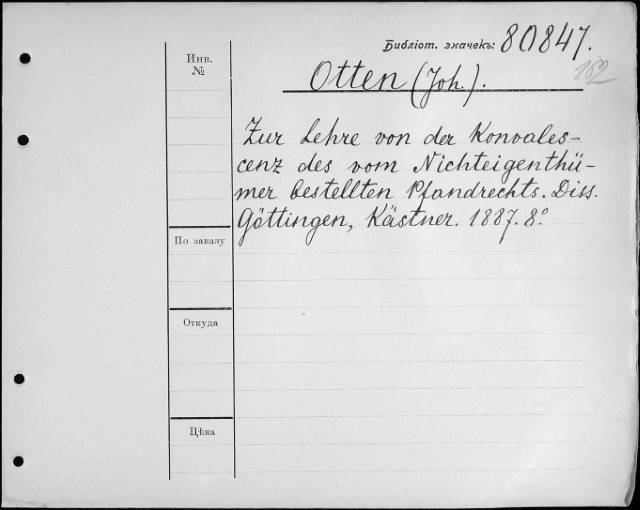 Библіот. значекъ: 80847.
Инв.
№
Otten (Joh.).
Zur Lehre von der Konvales-
cenz des vom Nichteigenthü-
mer bestellten Pfandrechts. Diss.
Göttingen, Kästner. 1887. 8º
По заказу
Откуда
Цѣна